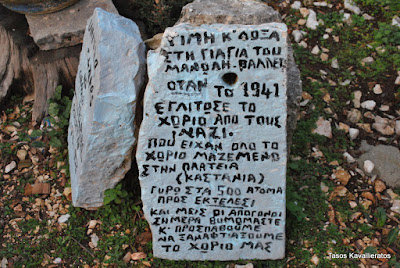 ΤΙΜΗ Κ' ΔΟΞΑ
ΣΤΗ ΓΙΑΓΙΑ ΤΟΥ
ΜΑΝΟΛΗ-ΒΑΛΛΕΙ
ΟΤΑΝ ΤΟ 1941
ΕΓΛΙΤΟΣΕ ΤΟ
ΧΩΡΙΟ ΑΠΟ ΤΟΥΣ
NAZI.
ΠΟΥ ΕΙΧΑΝ ΟΛΟ ΤΟ
ΧΩΡΙΟ ΜΑΖΕΜΕΝΟ
ΣΤΗΝ ΠΛΑΤΕΙΑ
(ΚΑΣΤΑΝΙΑ)
ΓΥΡΟ ΣΤΑ 500 ΑΤΟΜΑ
ΠΡΟΣ ΕΚΤΕΛΕΣΙ
ΚΑΙ ΜΕΙΣ ΟΙ ΑΠΟΓΟΝΟΙ
ΣΗΜΕΡΑ ΘΥΜΟΜΑΣΤΕ
Κ· ΠΡΟΣΠΑΘΟΥΜΕ
ΝΑ ΞΑΝΑΦΤΙΑΞΟΥΜΕ
ΤΟ ΧΩΡΙΟ ΜΑΣ
Tasos Kavallieratos